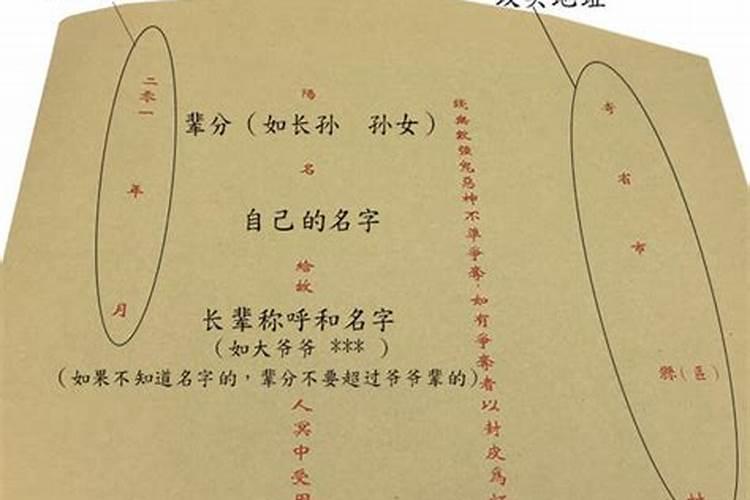 寄 省 市 縣(區) 村
强鬼惡神不準爭奪,如有爭奪者以封皮爲
陽
辈分(如长孙 孙女)
名
自己的名字
給故
长辈称呼和名字
(如大爷爷 *** )
(如果不知道名字的,辈分不要超过爷爷辈的)
人冥中受用
二零一 年 月